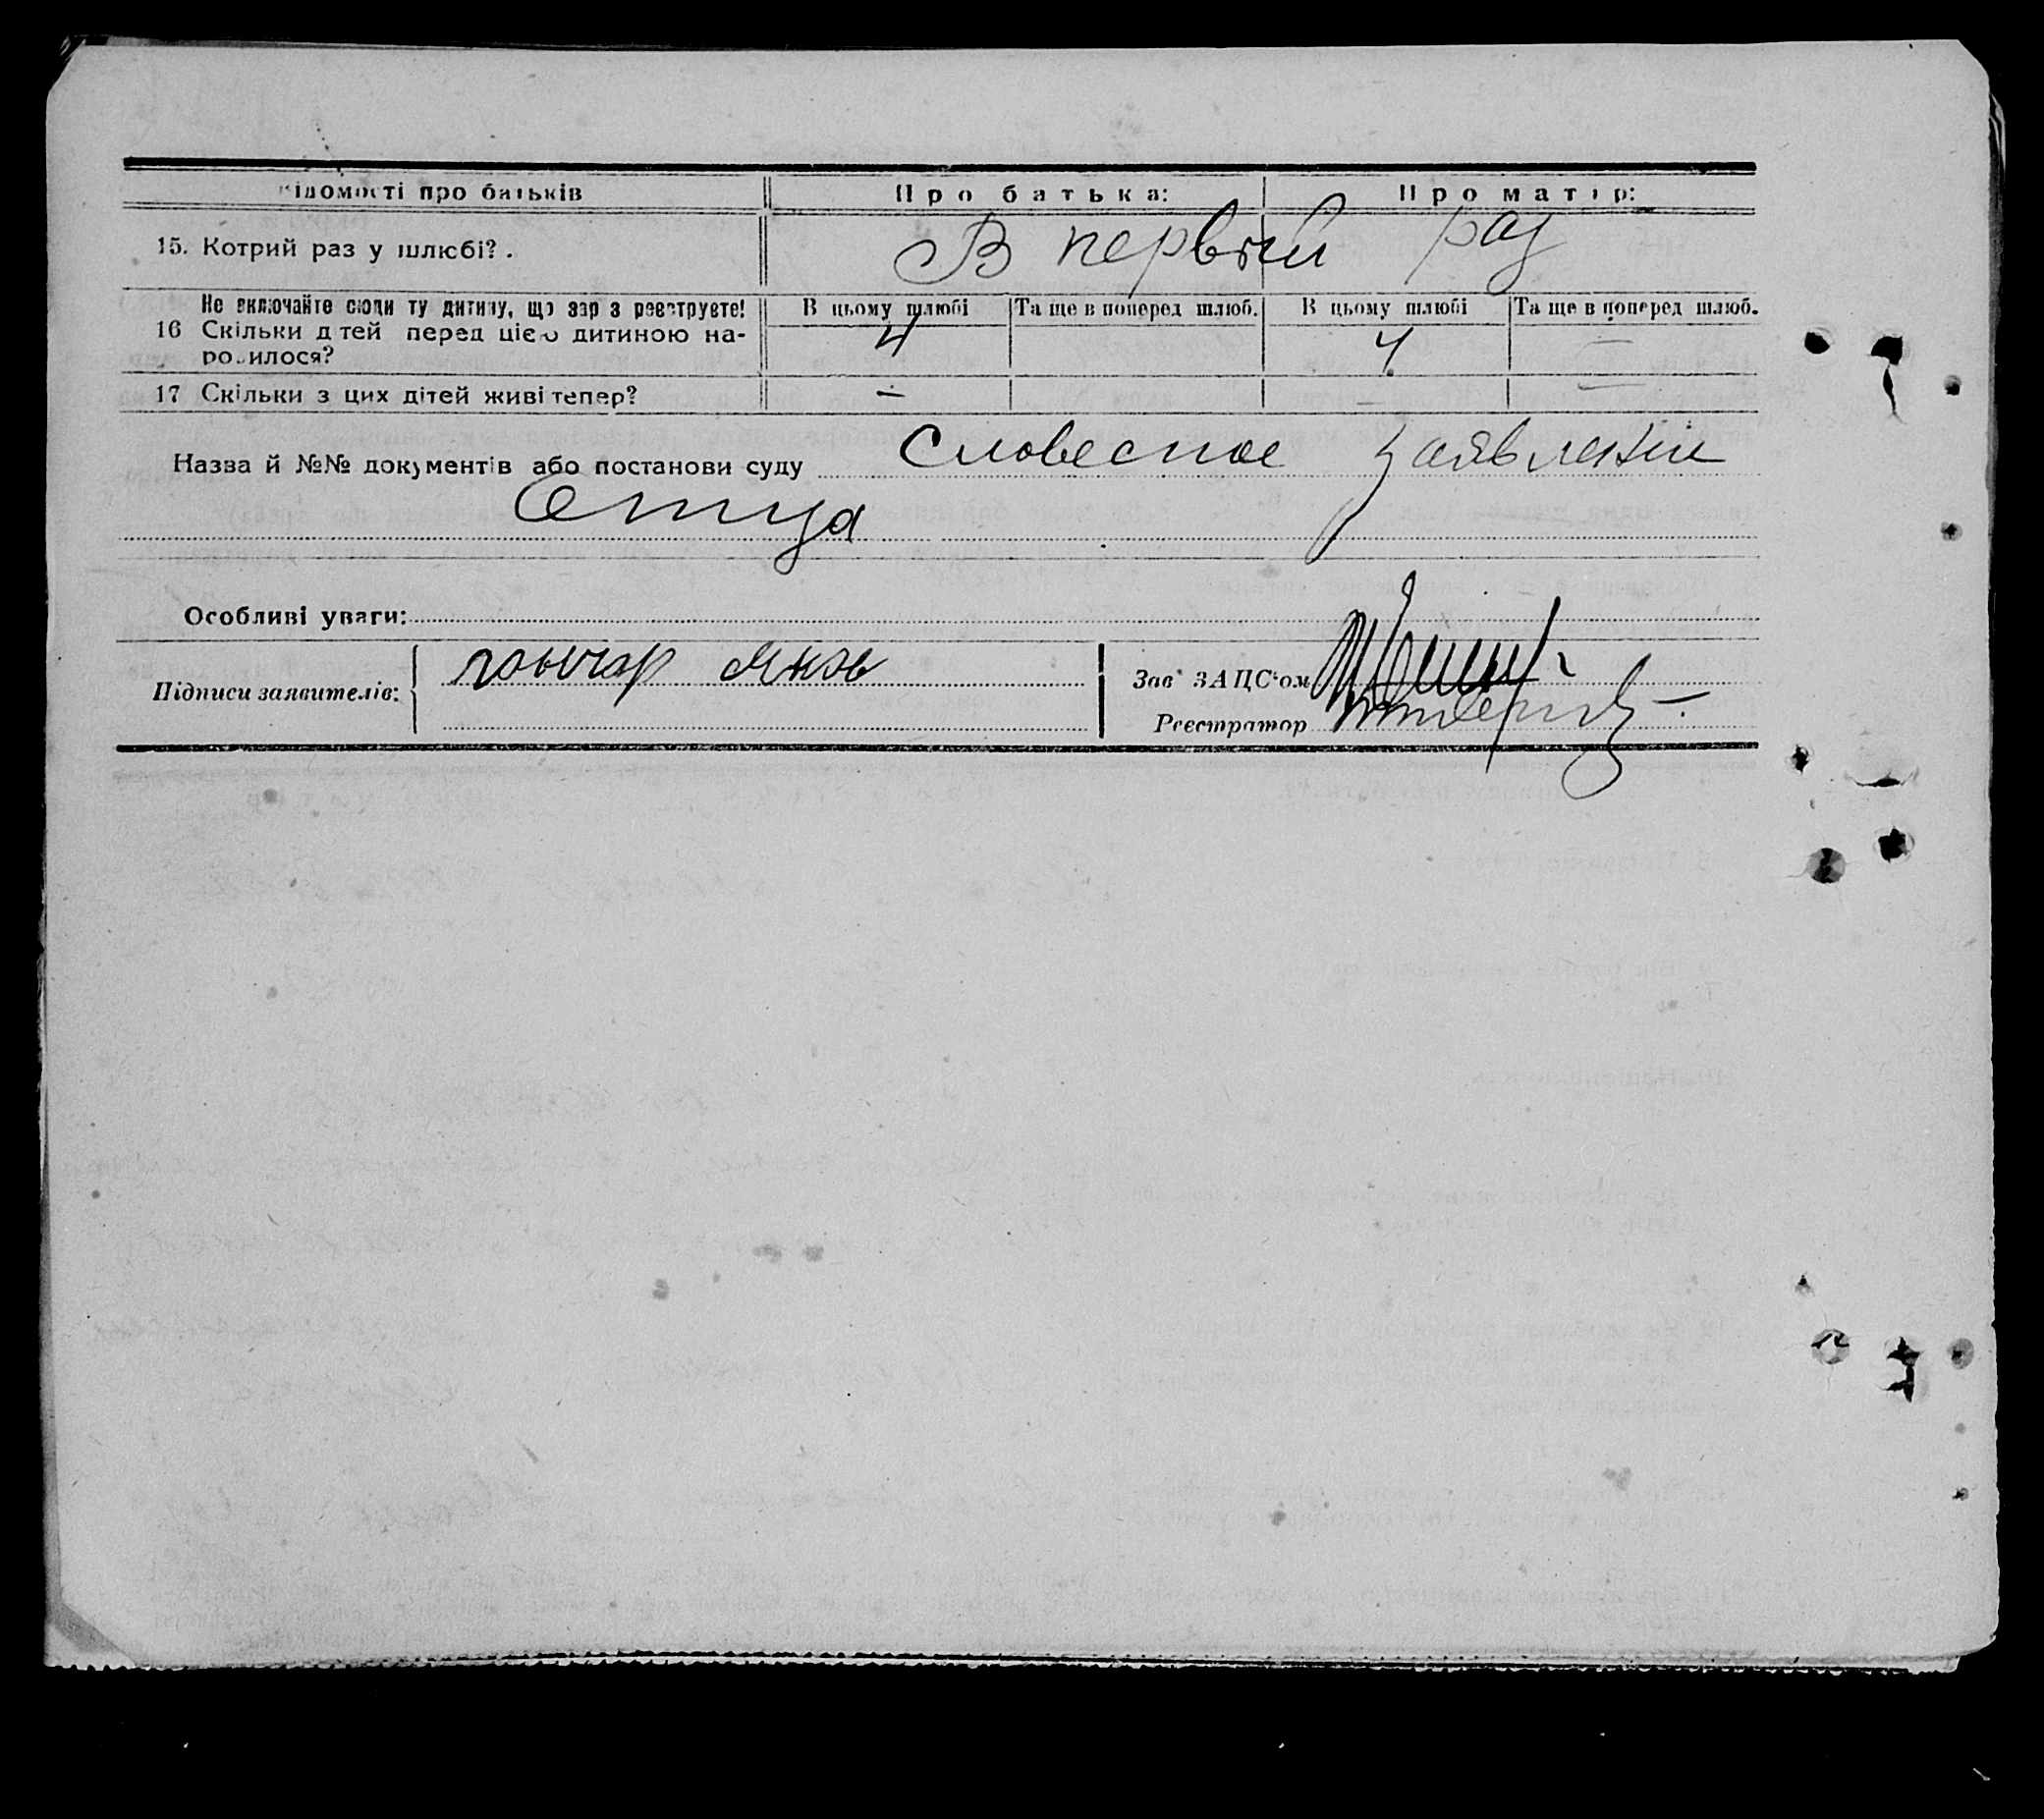 Відомості про батьків Про батька: Про матір:
15. Котрий раз у шлюбі? . В первый раз
Не включайте сюди ту дитину, що зар з реєструєте! В цьому шлюбі Та ще в поперед шлюб. В цьому шлюбі Та ще в поперед шлюб.
16 Скільки дтей перед цією дитиною на- 4 4 —
родилося?
17 Скільки з цих дітей живі тепер? — — —
Назва й №№ документів або постанови суду Словесное заявление
Отца
Особливі уваги:
Підписи заявителів: гончар
Зав' ЗАЦС'ом
Реєстратор